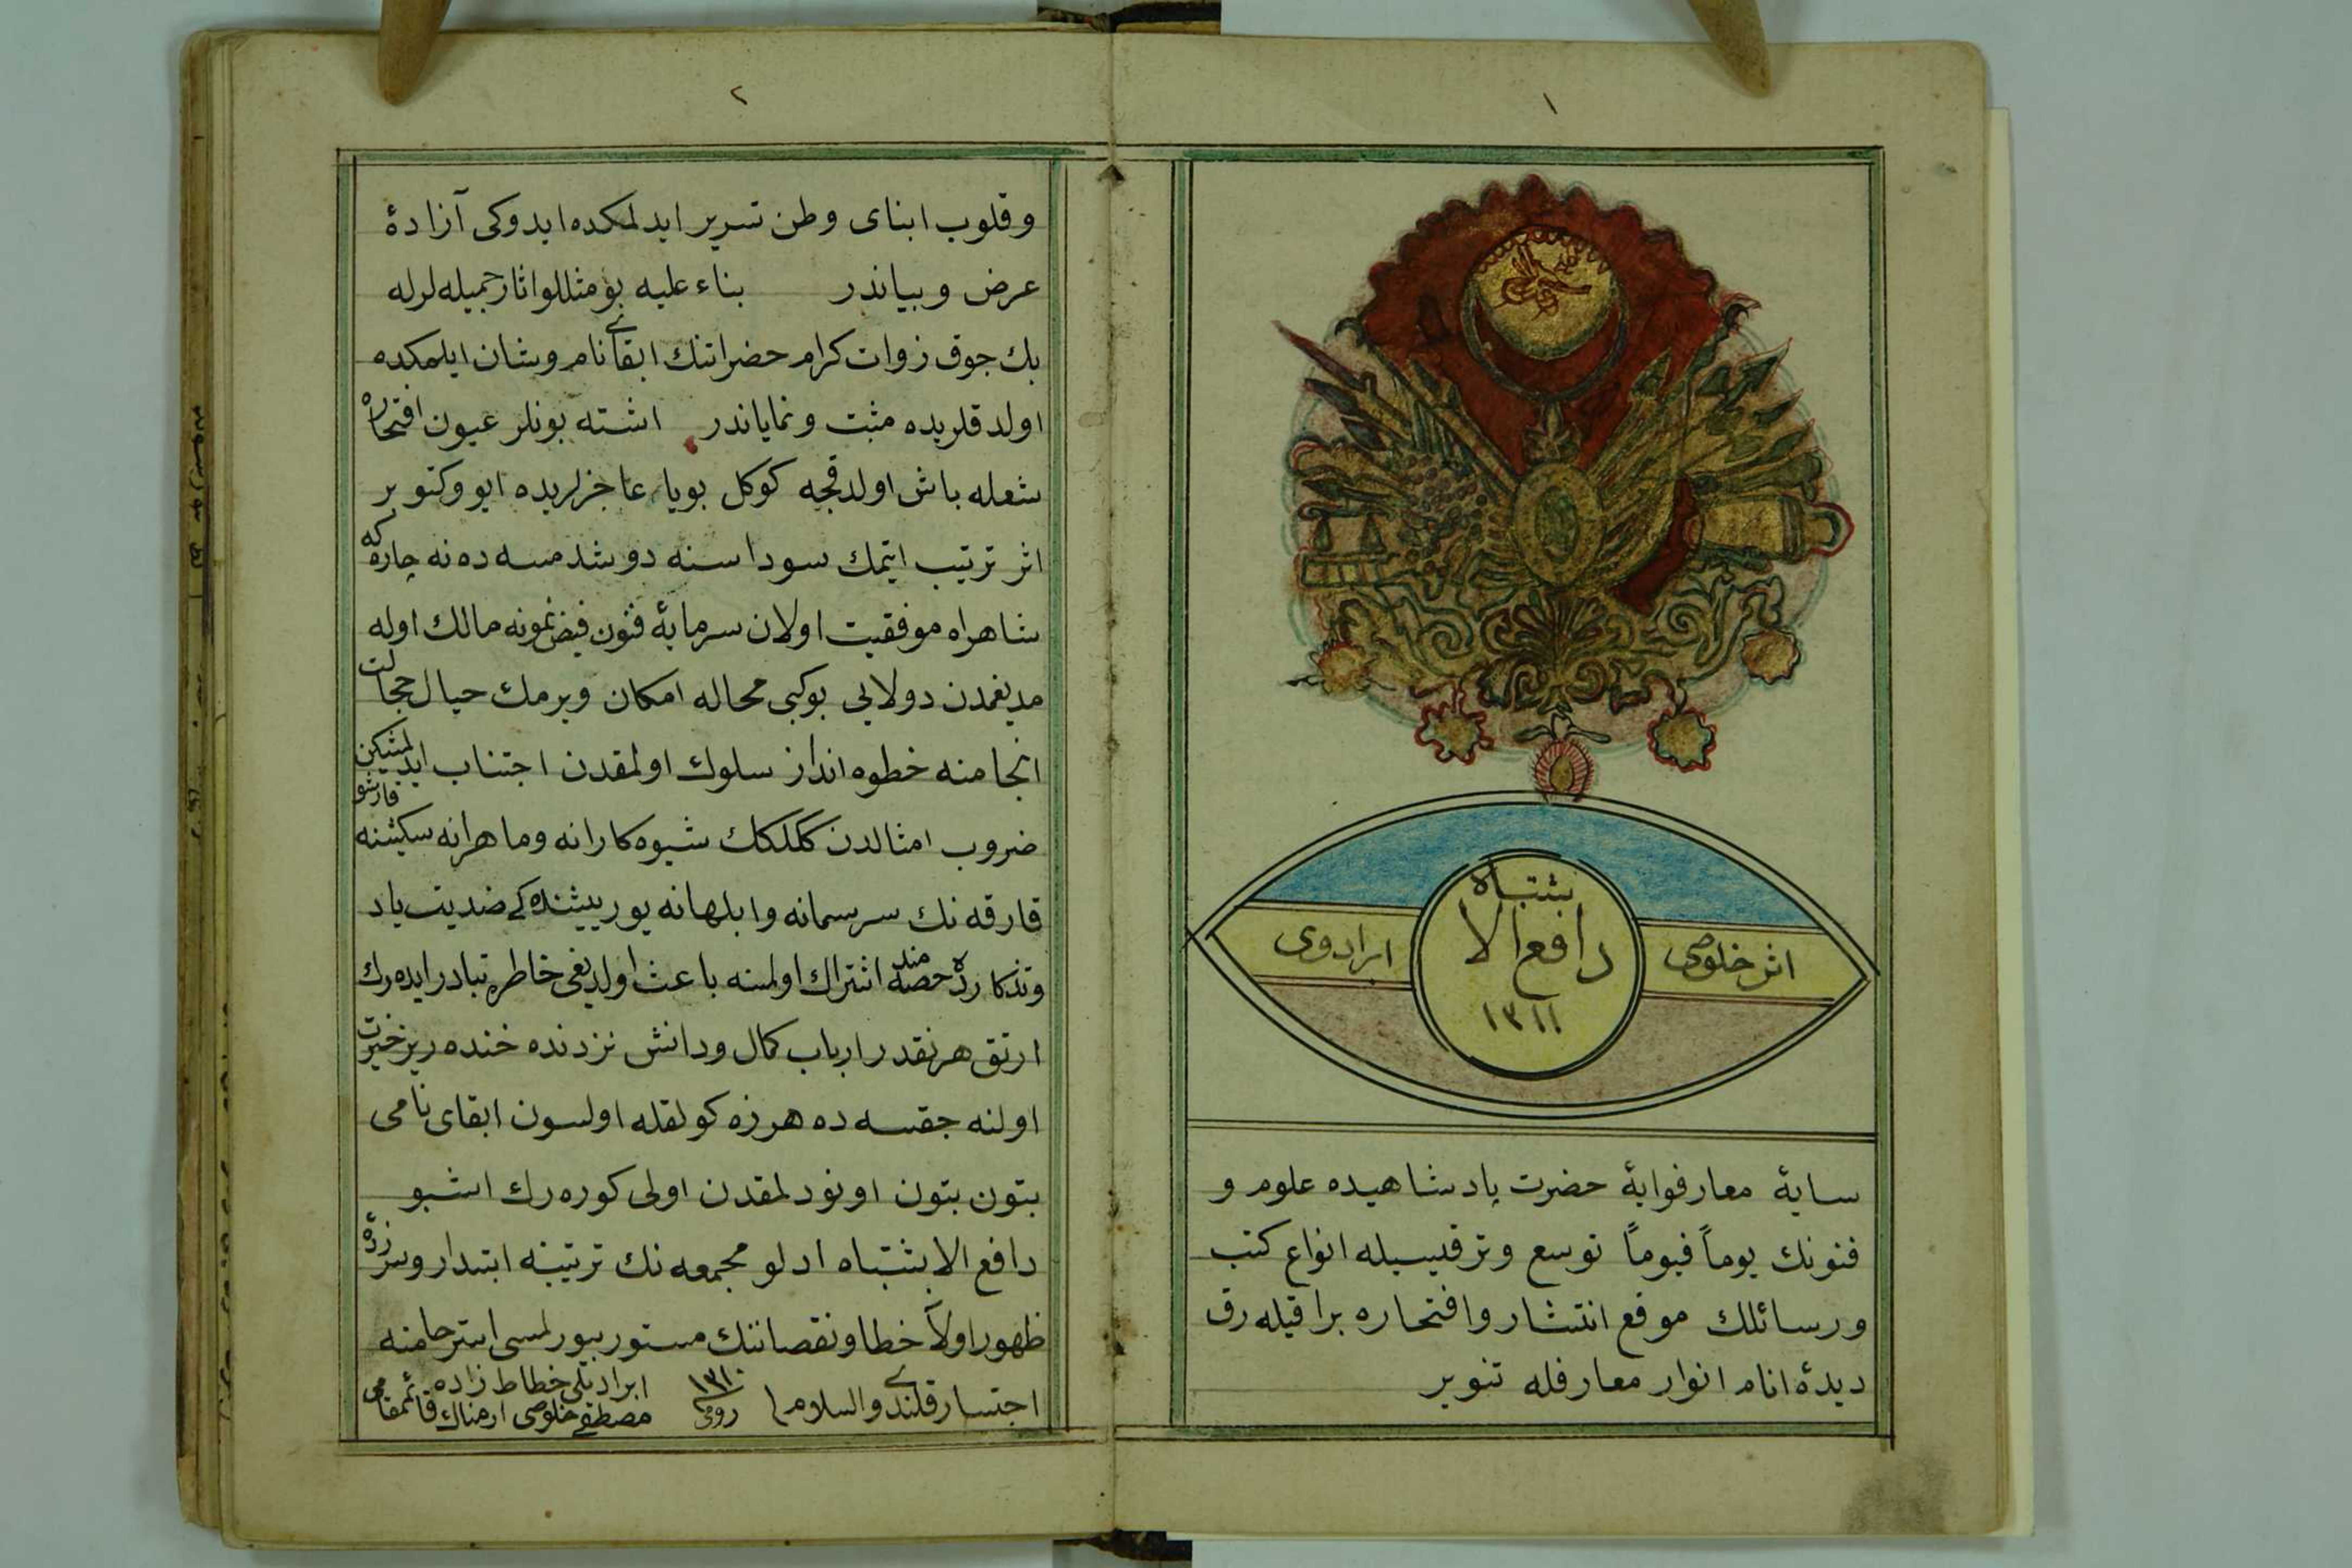 ١
بشتباه
دافع الا
١٣١١
اثر خلوصی
ابرادوی
سایهٔ معارفوایهٔ حضرت پادشاهیده علوم و
فنونك یوماً فیوماً توسع و ترقیسیله انواع كتب
و رسائلك موقع انتشار و افتخاره براقیله رق
دیدهٔ انام انوار معارفله تنویر
٢
و قلوب ابنای وطن تسریر ایدلمكده ایدوكی آزادهٔ
عرض و بیاندر بناء علیه بو مثللو اثار جمیله لرله
بك جوق زوات كرام حضراتنك ابقای نام وشان ایلمكده
اولدقلریده مثبت و نمایاندر اشته بونلر عیون افتخاره
شعله باش اولدقجه كوكل بویا عاجزلریده ایو وكتو بر
اثر ترتیب ایتمك سوداسنه دوشدمسه ده نه چاره كه
شاهراه موفقیت اولان سرمایهٔ فنون فیض نمونه مالك اوله
مدیغمدن دولایی بوكبی محاله امكان ویرمك خیال حجالت
انجامنه خطوه انداز سلوك اولمقدن اجتناب ایدلمشیكن
ضروب امثالدن كلككك شیوه كارانه وماهرانه سكیشنه قارشو
قارقه نك سرسمانه وابلهانه یورییشنده كی ضدیت یاد
وتذكارده حصه مند اشتراك اولمسنه باعث اولدیغی خاطره تبادر ایده رك
ارتق هرنقدر ارباب كمال ودانش نزدنده خنده ریز خیرت
اولنه جقسه ده هرزه كولقله اولسون ابقای نامی
بتون بتون اونودلمقدن اولی كوره رك اشبو
دافع الابشتباه ادلو مجمعه نك ترتیبنه ابتدار و سرزدهٔ
ظهور اولان خطا ونقصاننك مستور بیورلمسی استرحامنه
اجتسار قلندی والسلام
١٣١٠
رومی
ابرادیلی خطاط زاده
مصطفی خلوصی ارمناك قائمقامی